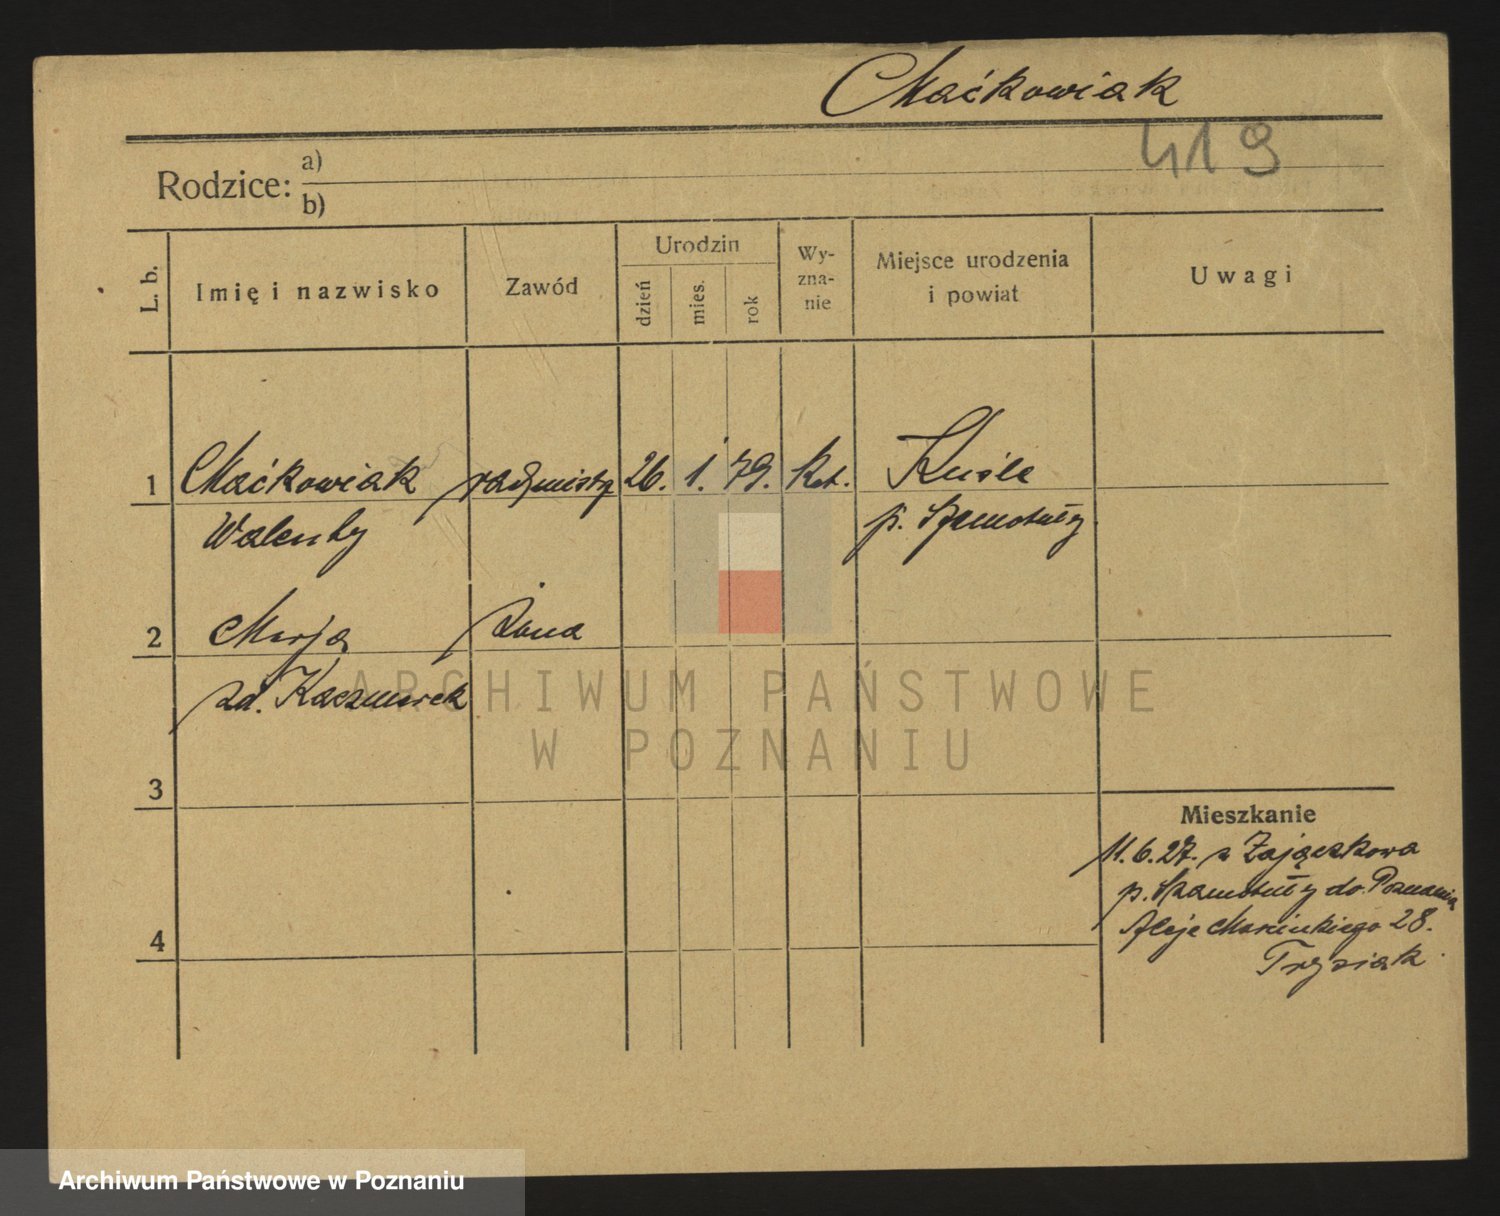 Maćkowiak
419
Rodzice: a)
b)
L. b.
Imię i nazwisko
Zawód
Urodzin
dzień
mies.
rok
Wy-
zna-
nie
Miejsce urodzenia
i powiat
Uwagi
1 Maćkowiak 26. 1. 79. kat.
Walenty p. Szamotuły
2 Marja żona
zd. Kaczmarek
ARCHIWUM PAŃSTWOWE
W POZNANIU
3
Mieszkanie
11.6.27. z Zajączkowa
p. Szamotuły do Poznania
Aleje Marcinkiego 28.
4
Archiwum Państwowe w Poznaniu